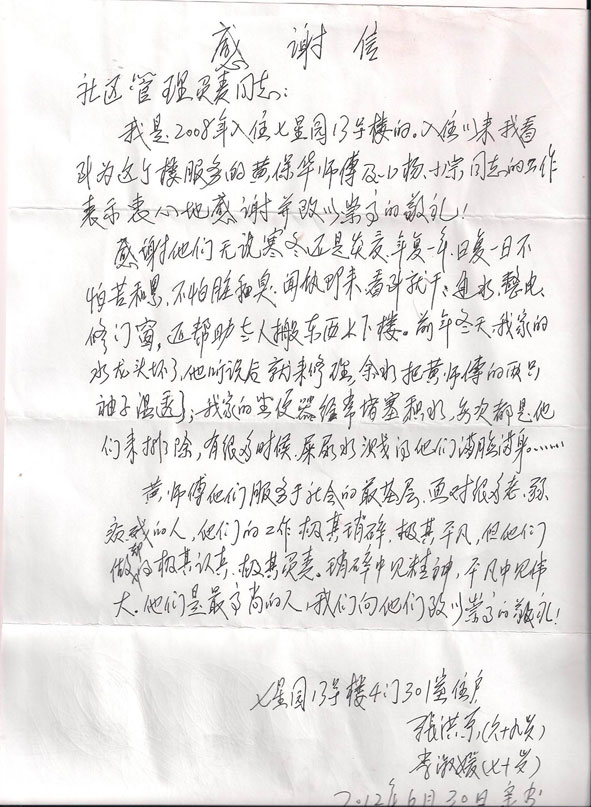 感谢信
社区管理负责同志:
我是2008年入住七星园13号楼的。入住以来我看
到为这个楼服务的黄保华师傅及小杨、小宗同志的工作
表示衷心地感谢并致以崇高的敬礼!
感谢他们无论寒冬还是炎夏、年复一年、日复一日不
怕苦和累、不怕脏和臭、闻款即来、看到就干:通水、整电、
修门窗,还帮助老人搬东西上下楼。前年冬天,我家的
水龙头坏了,他听说后就来修理,余水把黄师傅的两只
袖子湿透了;我家的坐便器经常堵塞积水,每次都是他
们来排除,有很多时候、屎尿水溅的他们满脸满身……
黄师傅他们服务于社会的最基层、面对很多老、弱
病残的人,他们的工作极其琐碎、极其平凡,但他们
做的都极其认真、极其负责。琐碎中见精神,平凡中见伟
大。他们是最高尚的人,我们向他们致以崇高的敬礼!
七星园13号楼4门301室住户
张洪(六十九岁)
李淑媛(七十岁)
2012年6月30日